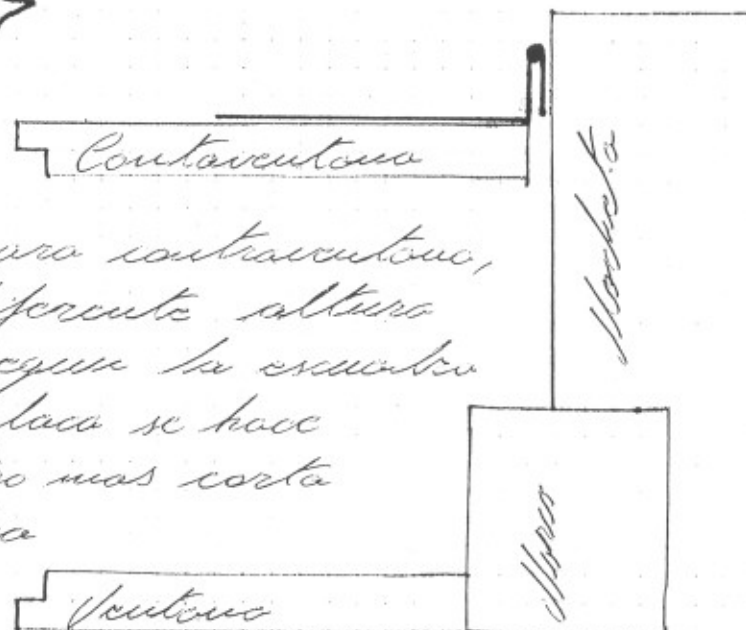 Contraventana
Mocheta
ara contraventana,
iferente altura
egun la escuadra
laca se hace
o mas corta
a
Marco
Ventana